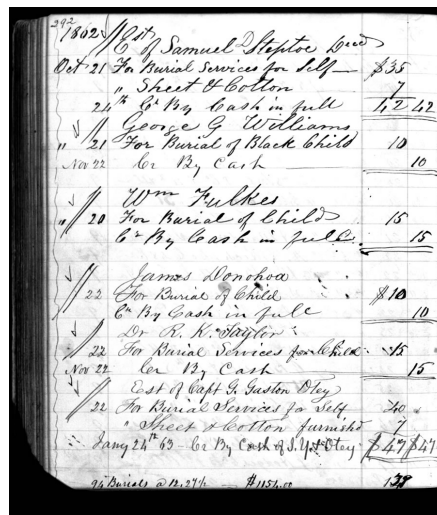 292
1862 Est
of Samuel D Steptoe Decd
Oct 21 For Burial Services for Self $35
" Sheet & Cotton 7
24th Cr By Cash in full 42 42
George G Williams
" 21 For Burial of Black Child 10
Nov 22 Cr By Cash 10
Wm Fulkes
" 20 For Burial of Child 15
Cr By Cash in full 15
James Donohoa
22 For Burial of Child $10
Cr By Cash in full 10
Dr R. K. Taylor
22 For Burial Services for Child 15
Nov 22 Cr By Cash 15
Est of Capt G. Gaston Otey
22 For Burial Services for Self 40
" Sheet & Cotton furnishd 7
Jany 24th 63 Cr By Cash of J. Y. Otey $47 $47
94 Burials @ 12.27½ — $1154.00